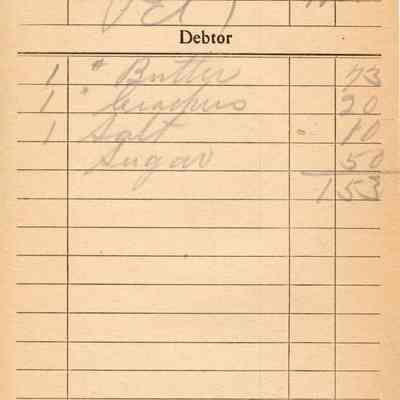 Debtor
1 # Butter 73
1 " Crackers 20
1 Salt 10
Sugar 50
153